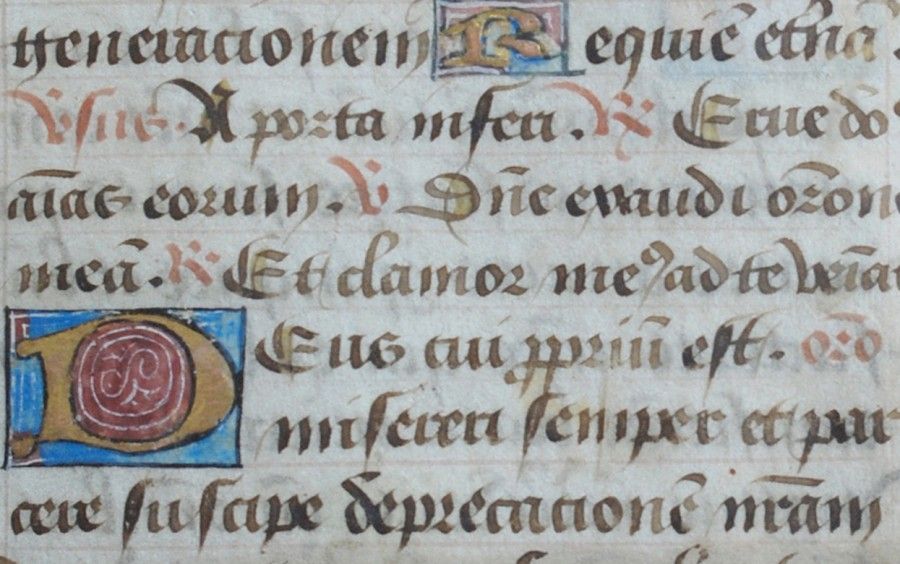 generacionem Requiē et̄nā.
V̸sus. A porta inferi. R̸ Erue dn̄e
aīas eorum. V̸ Dn̄e exaudi orōne
meā. R̸ Et clamor meꝰ ad te venīat
Deus cui ꝓpriū est. orō
misereri semper et par
cere suscipe deprecacionē nr̄am